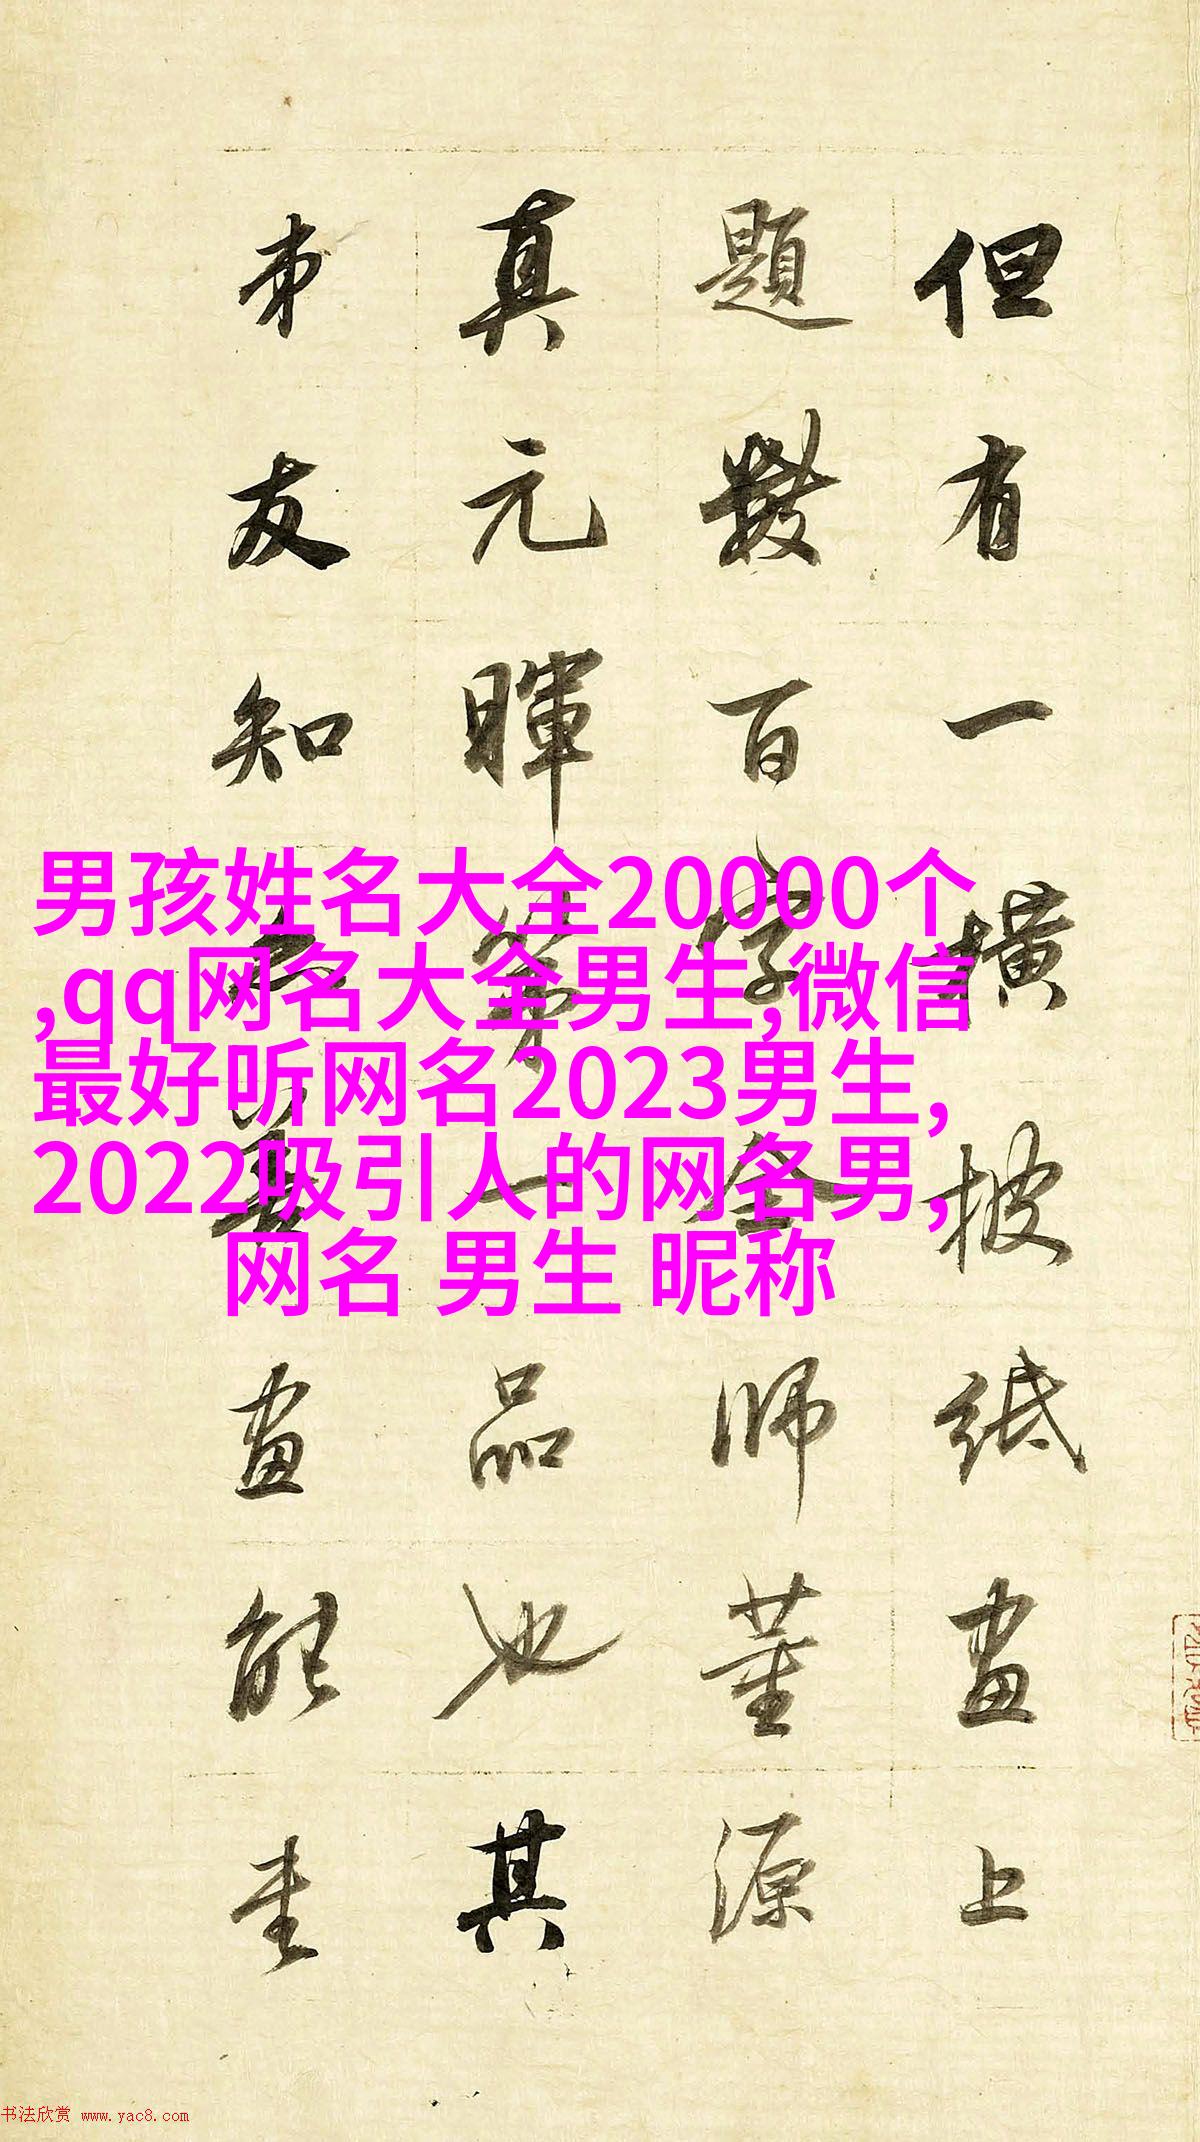 但有一横披纸画上
題數百字金师董源
真元暉第一品也其
知
画能
男孩姓名大全20000个
,qq网名大全男生,微信
最好听网名2023男生,
2022吸引人的网名男,
网名 男生 昵称
书法欣赏 www.yac8.com